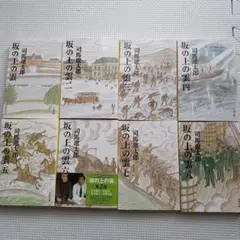 坂の上の雲 一
司馬遼太郎
坂の上の雲 二
司馬遼太郎
坂の上の雲 三
司馬遼太郎
坂の上の雲 四
司馬遼太郎
坂の上の雲 五
司馬遼太郎
坂の上の雲 六
司馬遼太郎
坂の上の雲
坂の上の雲 七
司馬遼太郎
坂の上の雲 八
司馬遼太郎